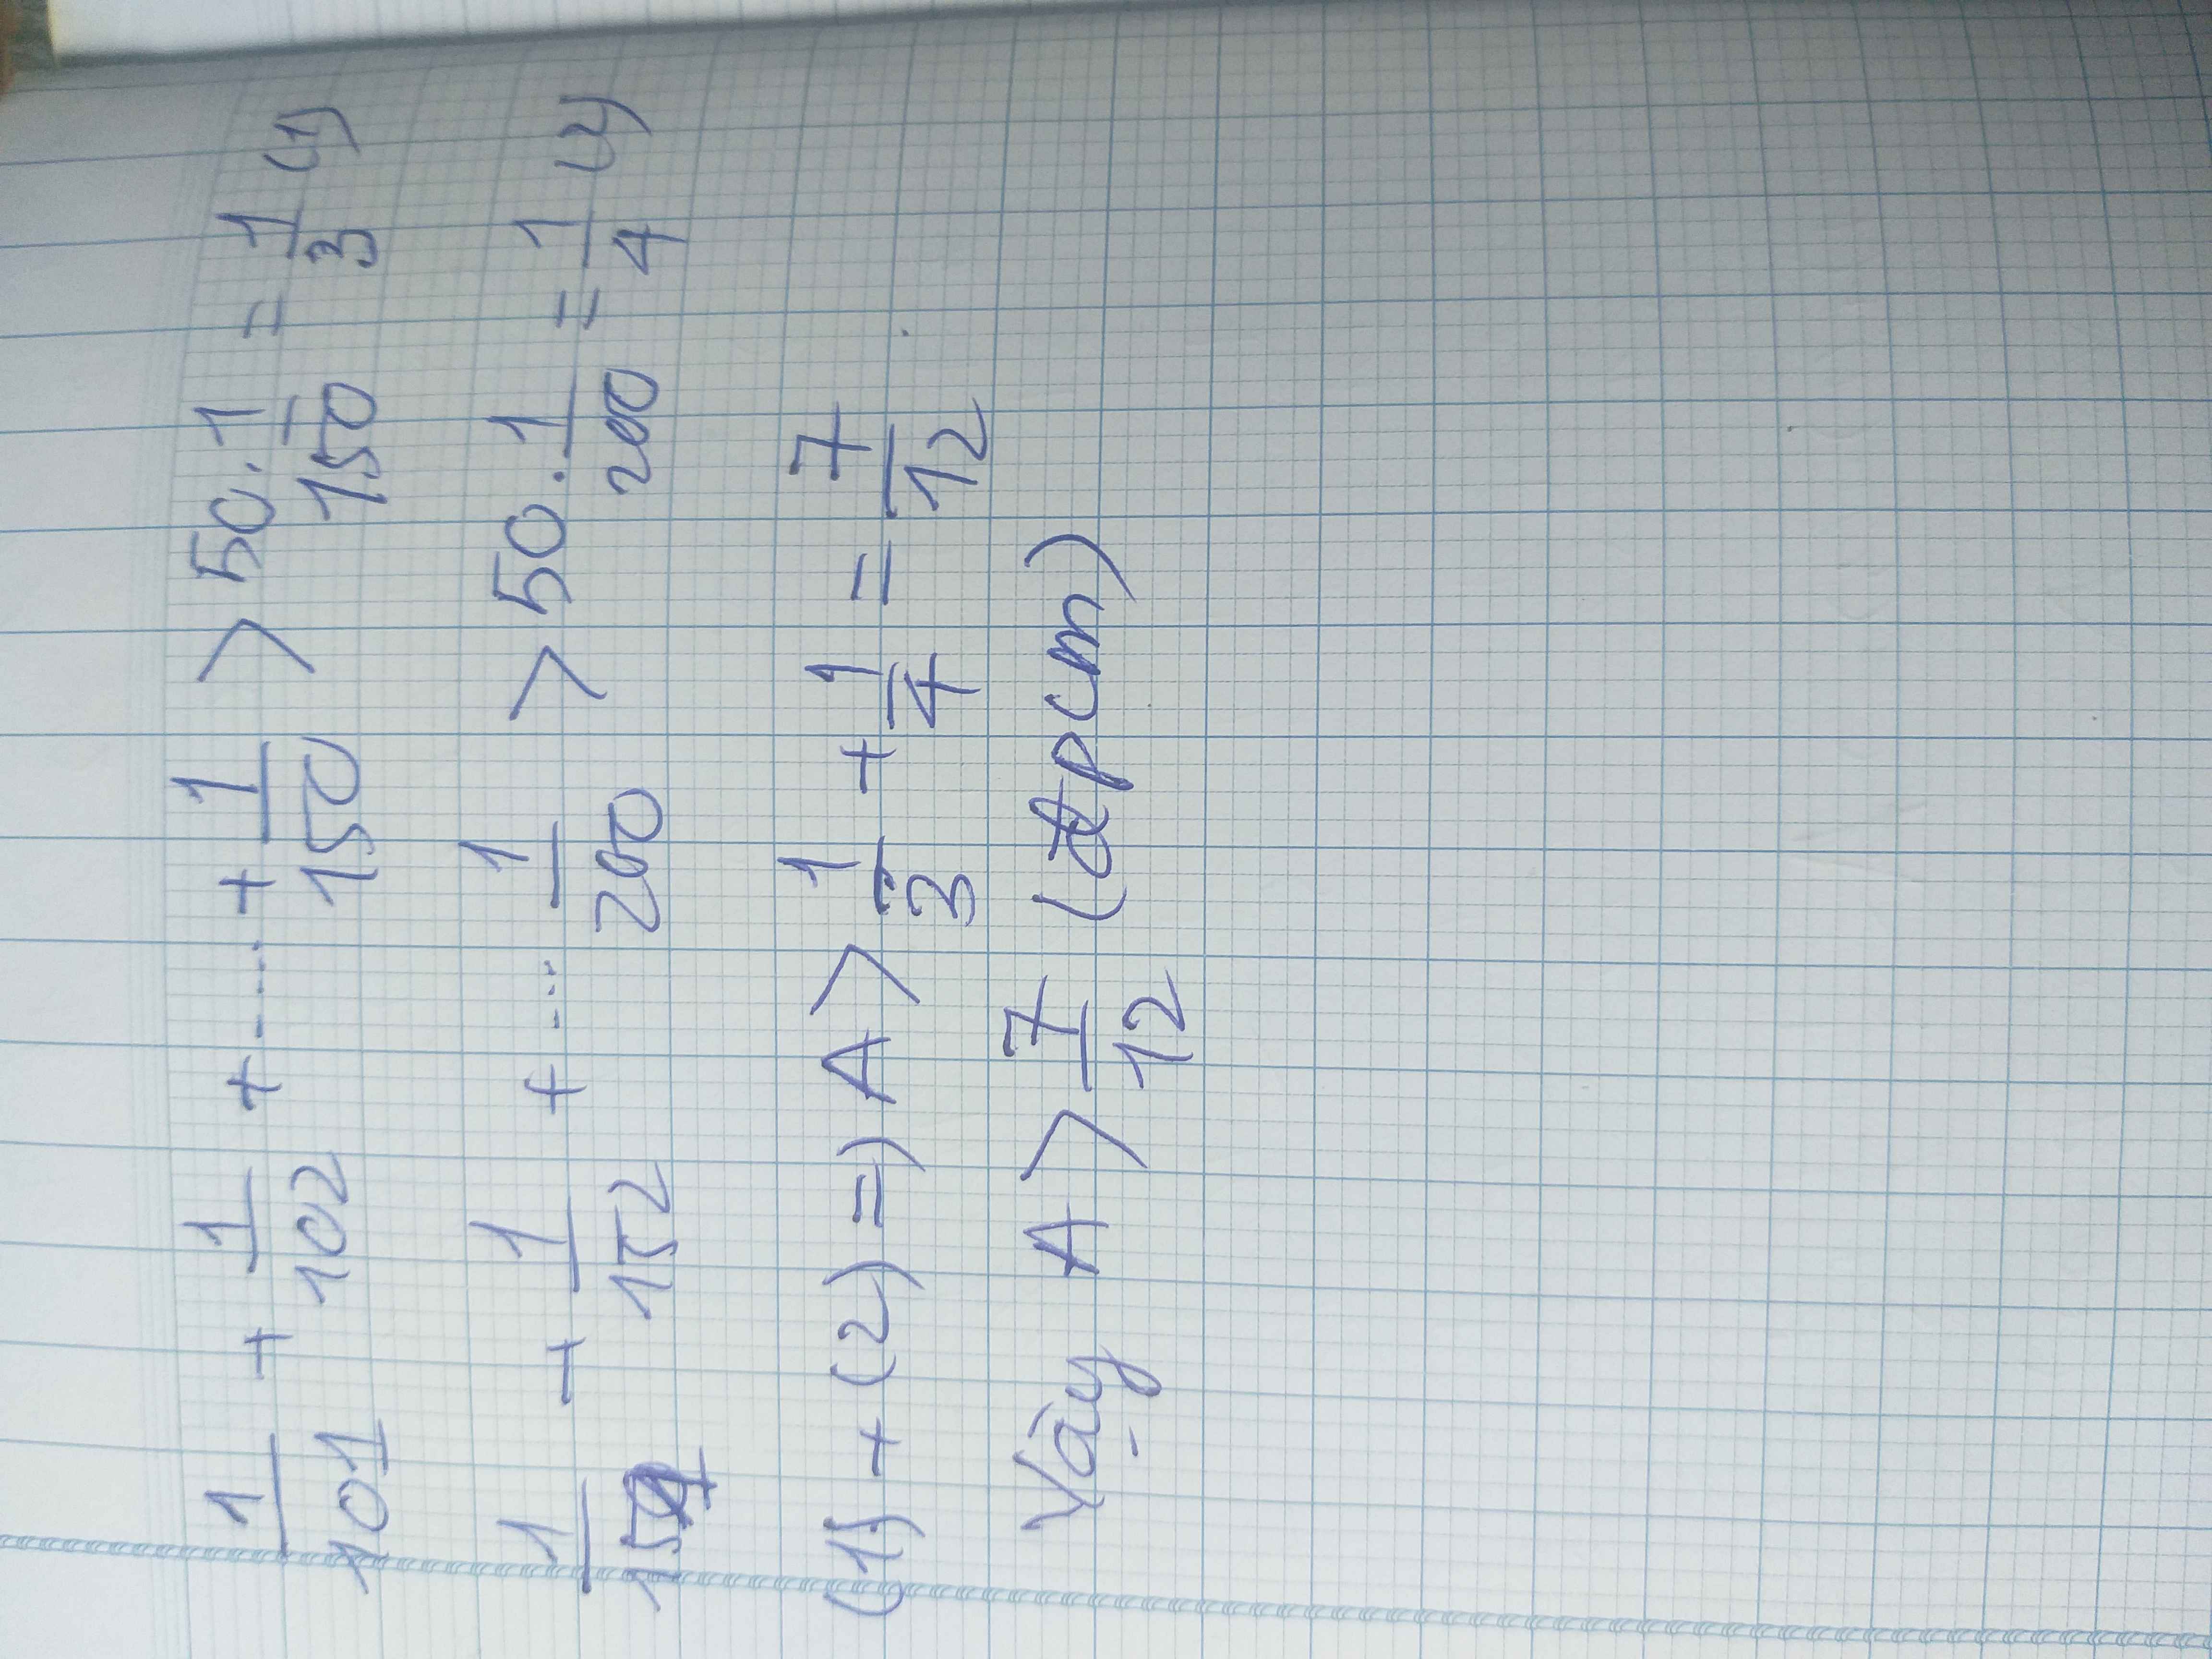 1/101 + 1/102 + ..... + 1/150 > 50.1/150 = 1/3 (1)
1/151 + 1/152 + .... 1/200 > 50.1/200 = 1/4 (2)
(1) + (2) =) A > 1/3 + 1/4 = 7/12
Vậy A > 7/12 (đpcm)